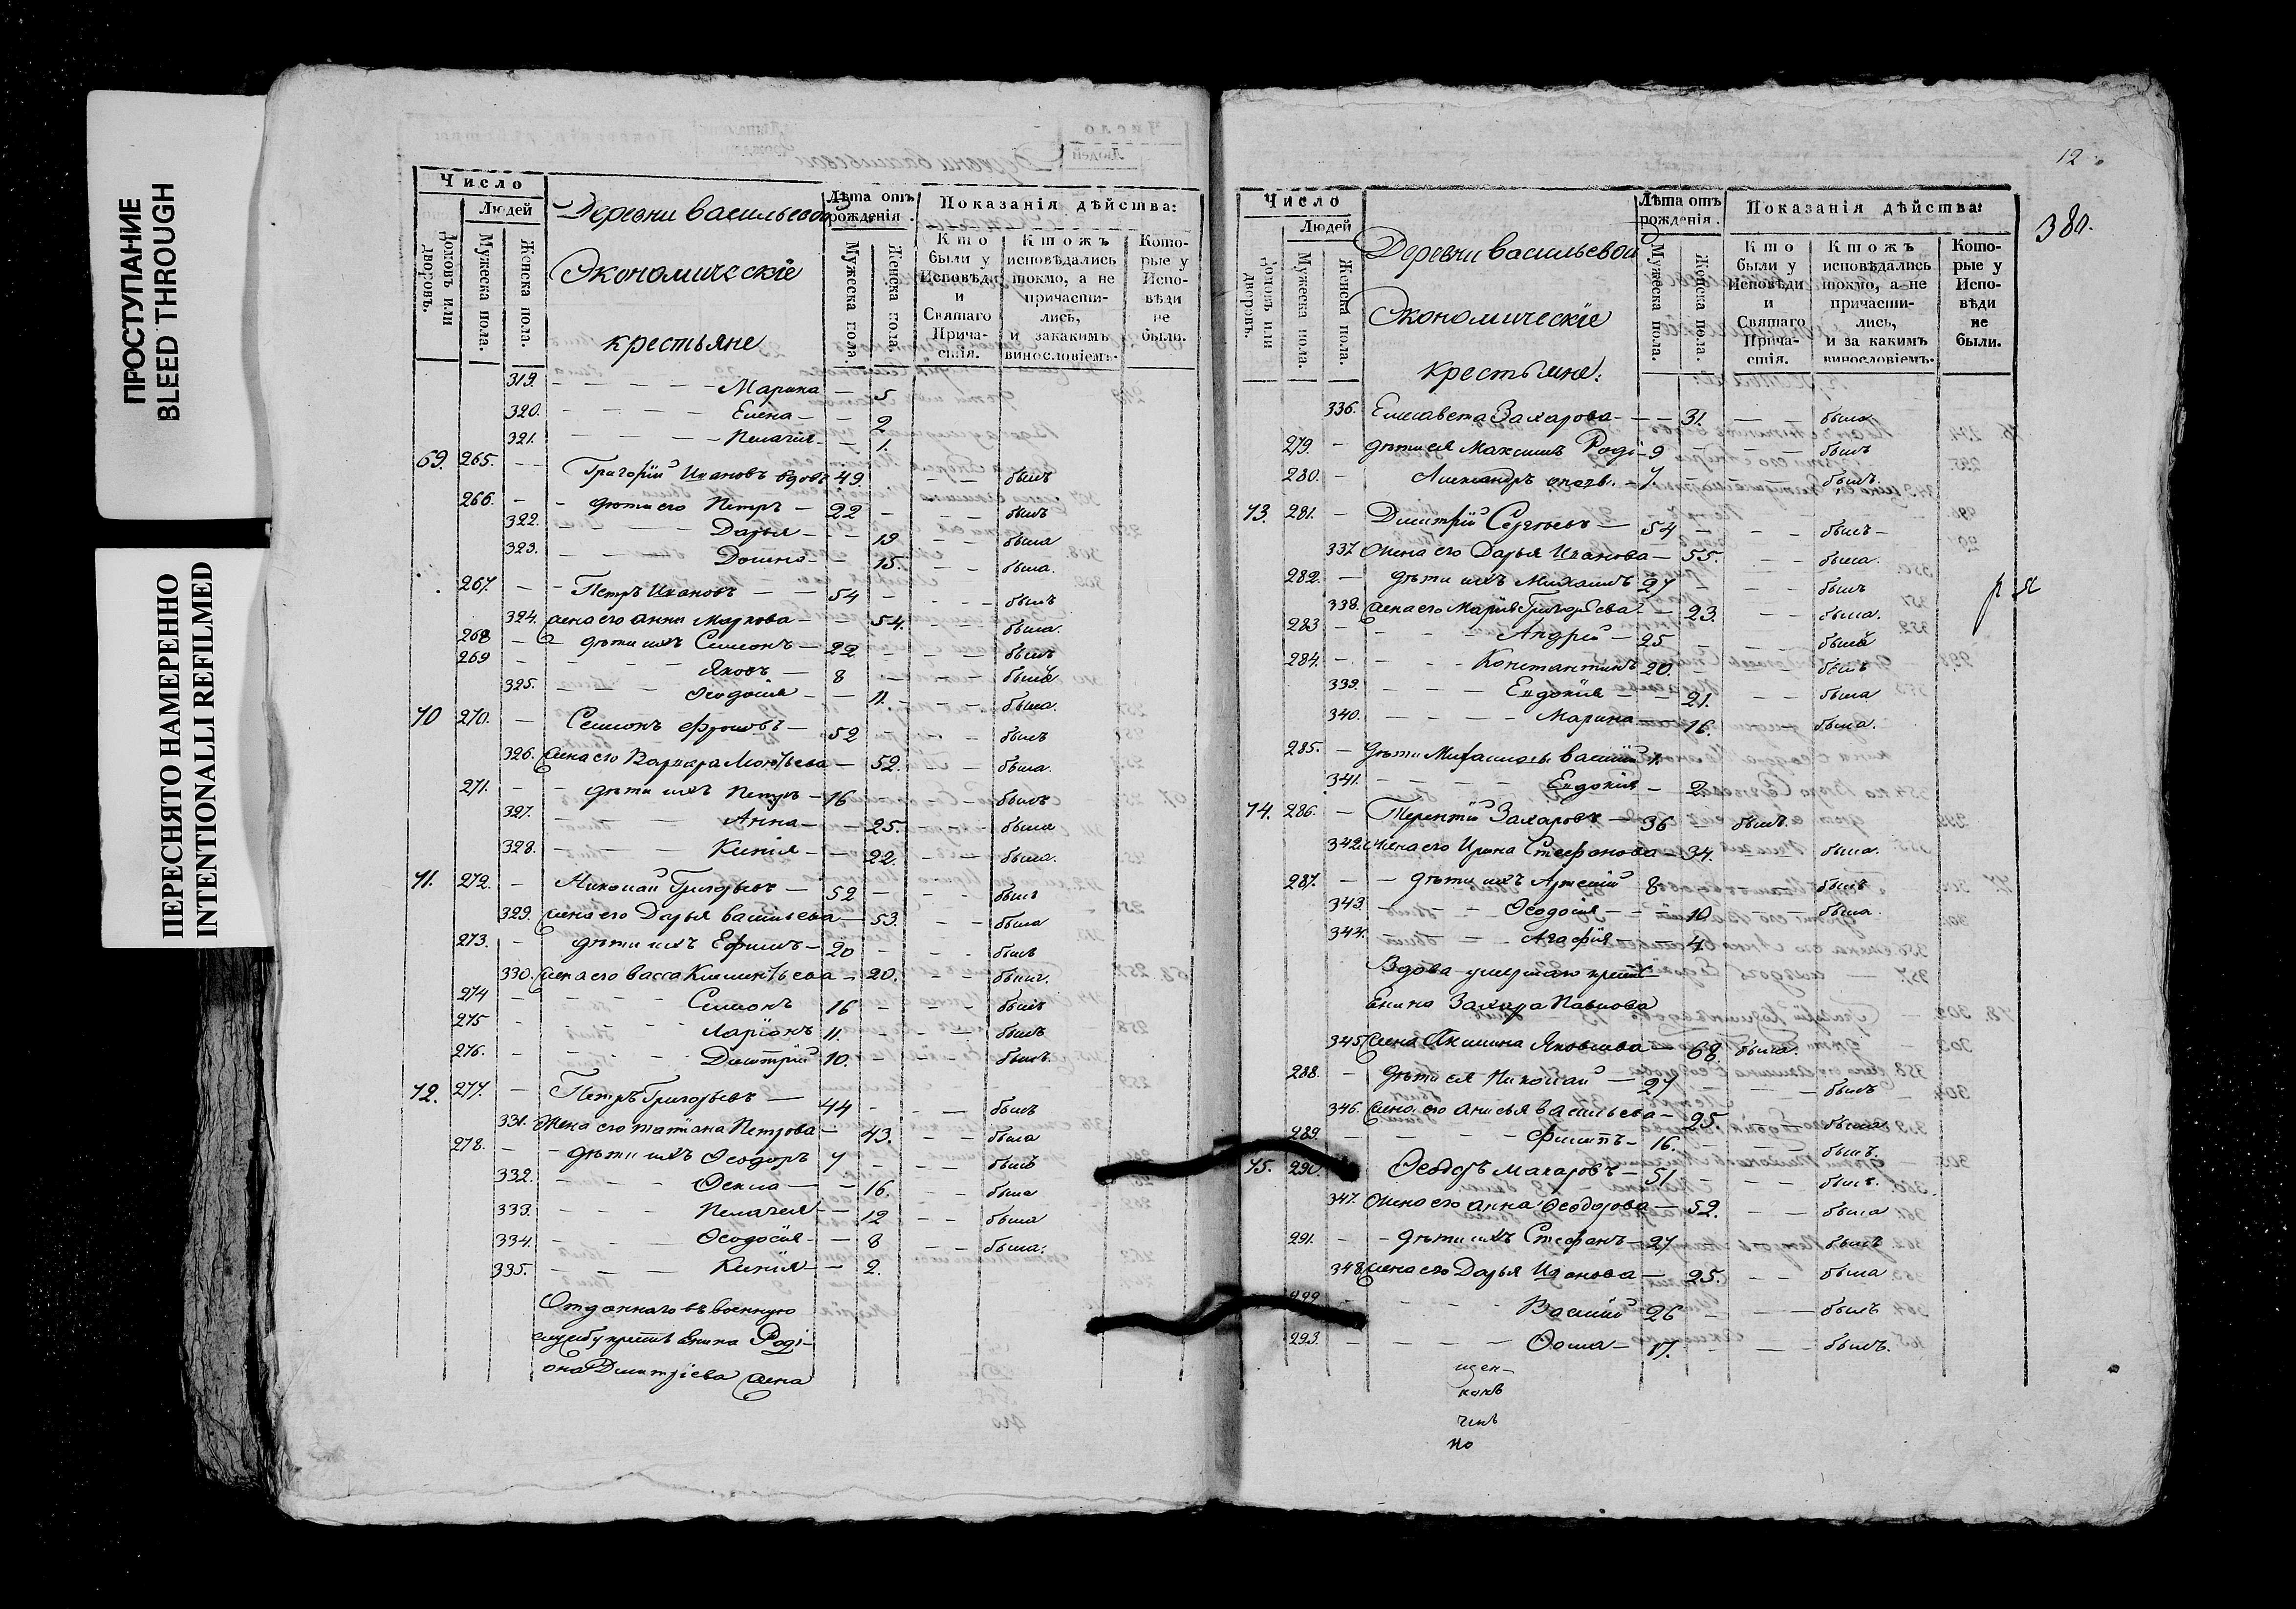 ПРОСТУПАНИЕ
BLEED THROUGH
ПЕРЕСНЯТО НАМЕРЕННО
INTENTIONALLI REFILMED
Число
Людей
Домовъ или дворовъ.
Мужеска пола.
Женска пола.
Деревни Васильевой
Экономическіе
крестьяне
Лѣта отъ рожденія.
Мужеска пола.
Женска пола.
Показанія дѣйства:
Кто были у Исповѣди и Святаго Причастія.
Ктожъ исповѣдались токмо, а не причастились, и закакимъ винословіемъ.
Которые у Исповѣди не были.
319. Марина 5
320. Елена 2
321. Пелагія 1.
69. 265. Григорій Ивановъ вдовъ 49. былъ
266. дѣти его Петръ 22 былъ
322. Дарья 19 была
323. Домна 15. была.
267. Петръ Ивановъ 54 былъ
324. жена его Анна Маркова 54. была.
268 дѣти ихъ Симонъ 22 былъ
269 Яковъ 8 былъ
325. Ѳеодосія 11. была.
70 270. Семионъ 52 былъ
326. жена его Варвара 52. была.
271. дѣти ихъ Петръ 16 былъ
327. Анна 25. была
328. Ксенія 22. была.
71. 272. Николай Григорьевъ 52 былъ
329. жена его Дарья Васильева 53. была
273. дѣти ихъ Ефимъ 20 былъ
330. жена его Васса Климентьева 20. была.
274 Симонъ 16 былъ
275 Ларіонъ 11. былъ
276. Димитрій 10. былъ
72. 277. Петръ Григорьевъ 44 былъ
331. жена его Татіана Петрова 43. была
278. дѣти ихъ Ѳеодоръ 7 былъ
332. Ѳекла 16. была
333. Пелагея 12 была
334. Ѳеодосія 8 была:
335. Ксенія 2.
Отданнаго въ военную
службу крестьянина Роді-
она Димитріева жена
12
380.
Число
Людей
Домовъ или дворовъ.
Мужеска пола.
Женска пола.
Деревни Васильевой
Экономическіе
крестьяне:
Лѣта отъ рожденія.
Мужеска пола.
Женска пола.
Показанія дѣйства:
Кто были у Исповѣди и Святаго Причастія.
Ктожъ исповѣдались токмо, а не причастились, и за какимъ винословіемъ.
Которые у Исповѣди не были.
336. Елисавета Захарова 31. была
279. дѣти ея Максимъ 9 былъ
280. Александръ 7. былъ.
73. 281. Димитрій Сергѣевъ 54 былъ
337. жена его Дарья Иванова 55. была.
282. дѣти ихъ Михаилъ 27 былъ
338. жена его Марія Григорьева 23. была.
283 Андрей 25 былъ
284. Константинъ 20. былъ
339. Евдокія 21. была
340. Марина 16. была.
285. дѣти Михаиловы Василій 1.
341. Евдокія 2
74. 286. Терентій Захаровъ 36 былъ.
342. жена его Ирина Стефанова 34. была.
287. дѣти ихъ Арсеній 8 былъ
343. Ѳеодосія 10. была.
344. Агафія 4.
Вдова умершаго кресть-
янина Захара Павлова
345. жена Акилина Яковлева 68. была.
288. дѣти ея Николай 27 былъ
346. жена его Анисья Васильева 25. была.
289. Филипъ 16. былъ.
75. 290. Ѳеодоръ Макаровъ 51. былъ.
347. жена его Анна Ѳеодорова 52. была
291. дѣти ихъ Стефанъ 27 былъ
348. жена его Дарья Иванова 25. была
292 Василій 26 былъ
293. Ѳома 17. былъ.